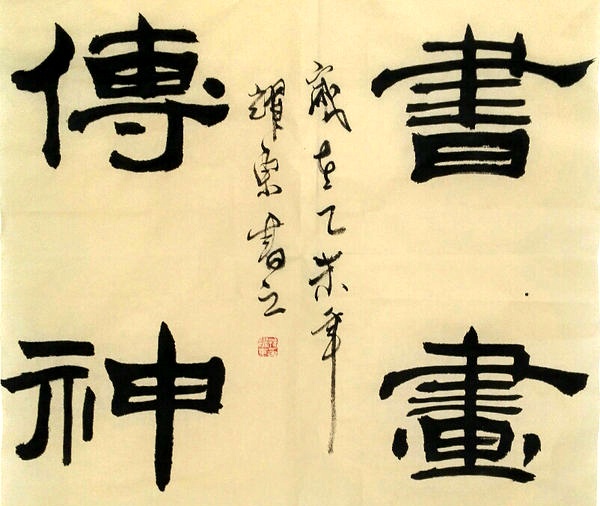 書畫
傳神
歲在乙未年
耀東書之